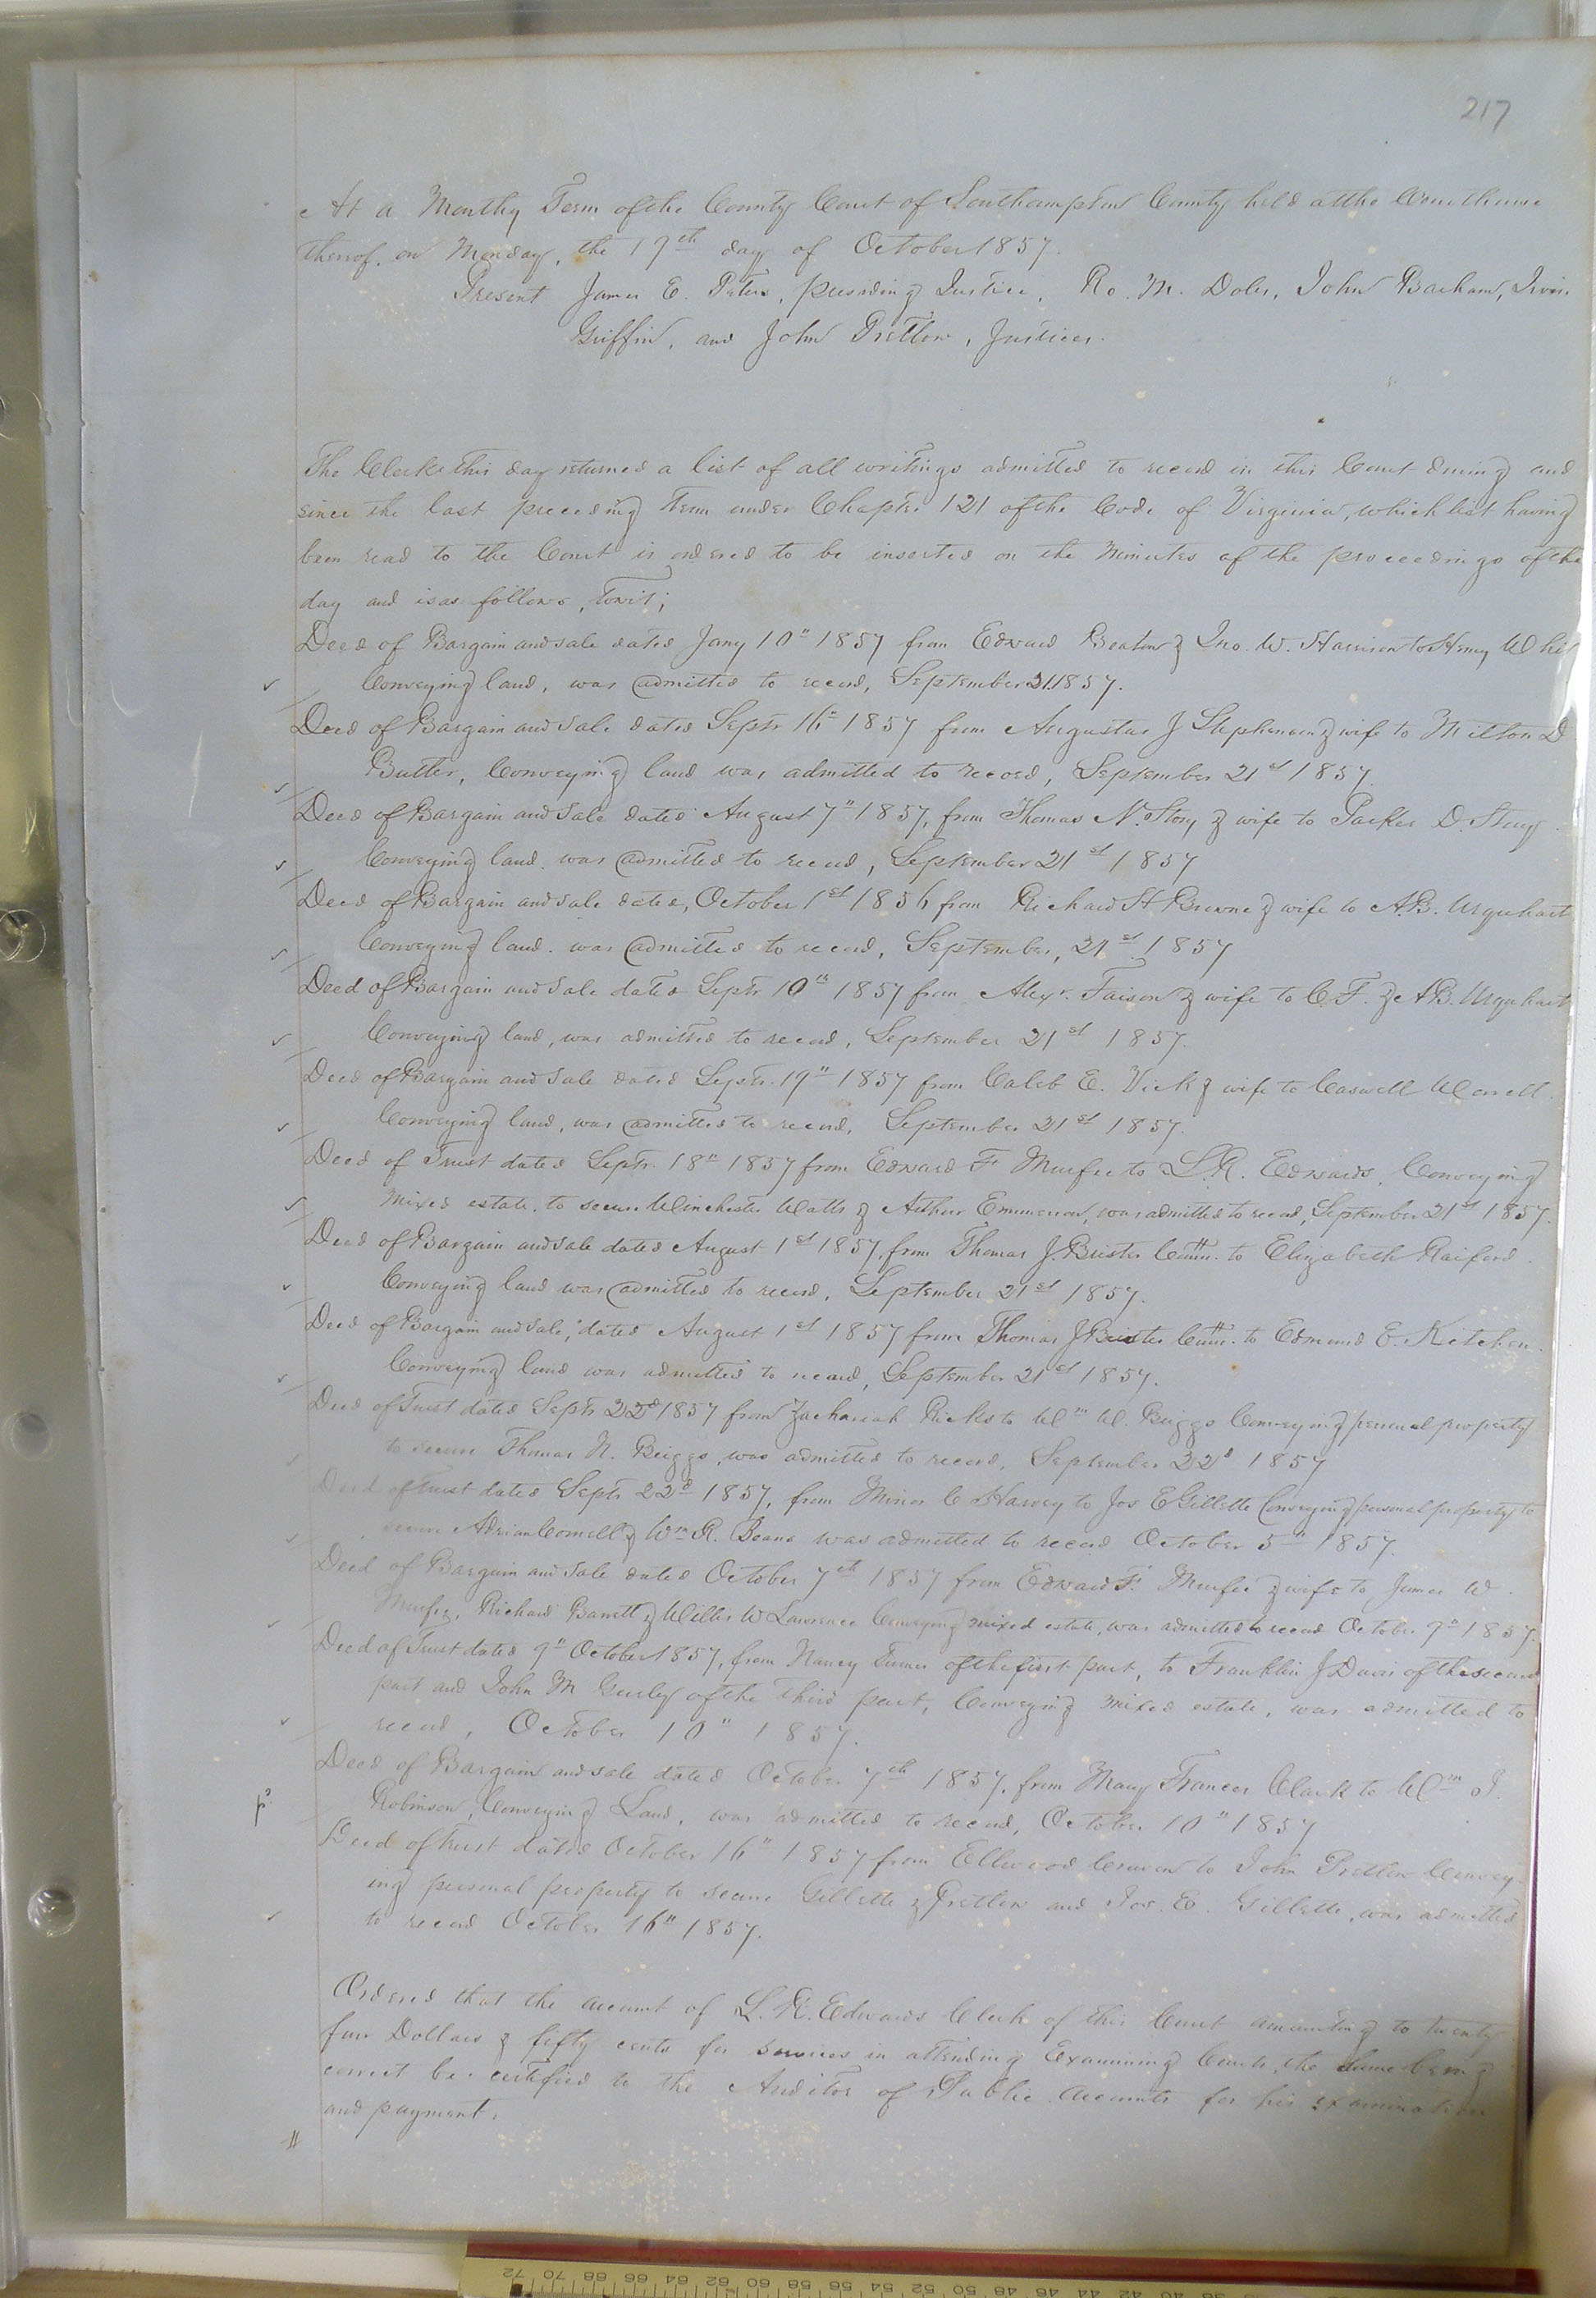 217
At a Monthly Term of the County Court of Southampton County held at the Courthouse
thereof, on Monday, the 19th day of October 1857.
Present James E. Peters, presiding Justice, Ro. M. Doles, John Barham,
Griffin, and John Pretlow, Justices.
The Clerk this day returned a list of all writings admitted to record in this Court during and
since the last preceeding Term under Chapter 121 of the Code of Virginia, which list having
been read to the Court is ordered to be inserted on the Minutes of the proceedings of the
day and is as follows, Towit;
Deed of Bargain and sale dated Jany 10" 1857 from Edward Beaton & Jno. W. Harrison to Henry
Conveying land, was admitted to record, September 21 1857.
Deed of Bargain and Sale dated Septr 16" 1857 from Augustus J Stephenson & wife to Milton D
Butler, Conveying land was admitted to record, September 21st 1857.
Deed of Bargain and Sale dated August 7" 1857, from Thomas N. Story & wife to Parker D. Story
Conveying land. was admitted to record, September 21st 1857
Deed of Bargain and sale dated, October 1st 1856 from Richard H Browne & wife to A.B. Urquhart
Conveying land. was admitted to record, September, 21st 1857
Deed of Bargain and Sale dated Septr 10th 1857 from Alexr. Faison & wife to C.F. & AB. Urquhart
Conveying land, was admitted to record, September 21st 1857.
Deed of Bargain and Sale dated Septr. 19" 1857 from Caleb E. Vick & wife to Caswell Worrell
Conveying land, was admitted to record, September 21st 1857.
Deed of Trust dated Septr. 18" 1857 from Edward F Murfee to L.R. Edwards, Conveying
mixed estate, to secure Winchester Watts & Arthur Emmerson, was admitted to record, September 21st 1857.
Deed of Bargain and Sale dated August 1st 1857, from Thomas J. Brister to Elizabeth Raiford.
Conveying land was admitted to record, September 21st 1857.
Deed of Bargain and Sale, dated August 1st 1857 from Thomas J Brister to Edmund E. Kitchen.
Conveying land was admitted to record, September 21st 1857.
Deed of Trust dated Septr 22d 1857 from Zachariah Ricks to Wm W. Briggs Conveying personal property
to secure Thomas N. Briggs, was admitted to record, September 22d 1857
Deed of Trust dated Septr 22d 1857, from Minor C Harvey to Jos E Gillette Conveying personal property to
secure Adrian Cornell & Wm R. Beans was admitted to record October 5th 1857.
Deed of Bargain and Sale dated October 7th 1857 from Edward F. Murfee & wife to James W.
Murfee, Richard Barrett & Willis W Lawrence Conveying mixed estate, was admitted to record October 9" 1857.
Deed of Trust dated 9" October 1857, from Nancy Turner of the first part, to Franklin J Davis of the second
part and John M Gurley of the Third part, Conveying mixed estate, was admitted to
record, October 10" 1857.
Deed of Bargain and sale dated October 7th 1857, from Mary Frances Clark to Wm J.
Robinson, Conveying Land, was admitted to record, October 10" 1857
Deed of Trust dated October 16" 1857 from Ellwood to John Pretlow Convey-
ing personal property to secure Gillette & Pretlow and Jos. E. Gillette, was admitted
to record October 16" 1857.
Ordered that the account of L.R. Edwards Clerk of this Court amounting to twenty
four Dollars & fifty cents for services in attending Examining Courts, the same being
correct be certified to the Auditor of Public Accounts for his examination
and payment.
72 70 68 66 64 62 60 58 56 54 52 50 48 46 44 42 40 38